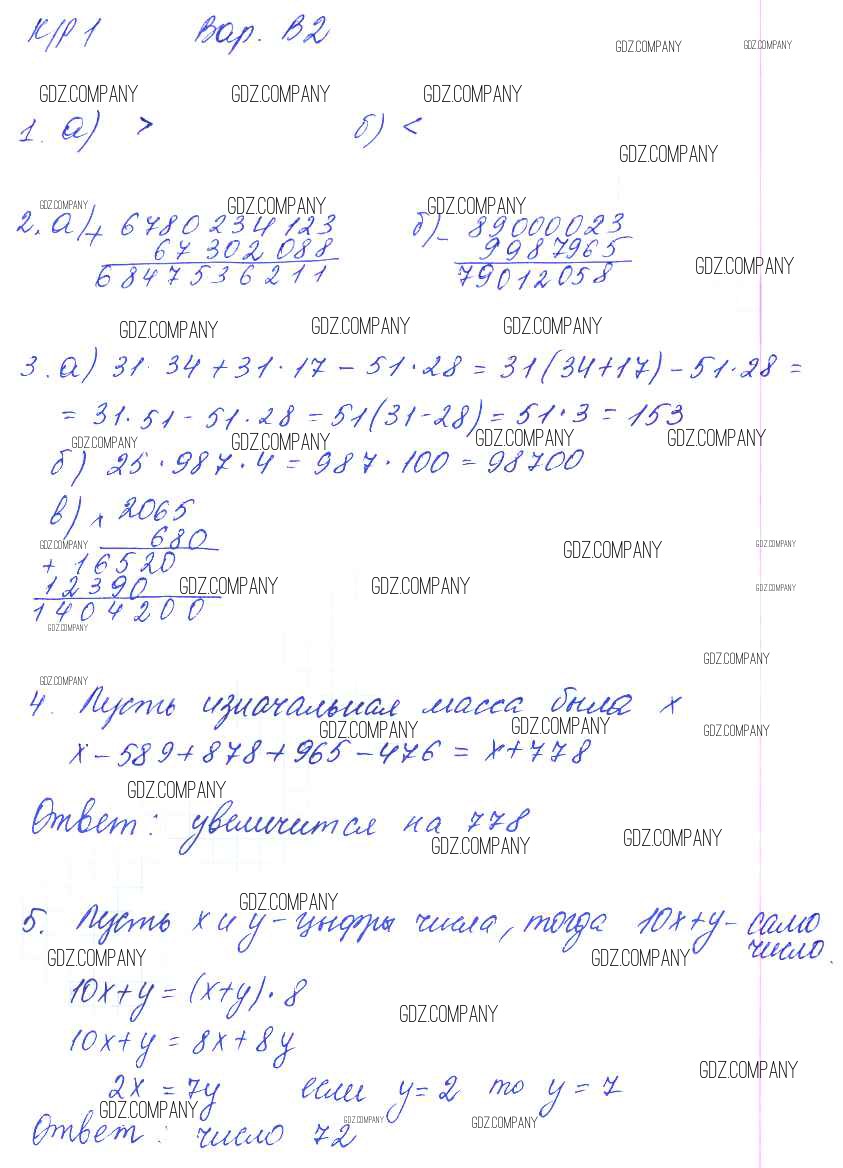 К/Р 1 Вар. В2
GDZ.COMPANY GDZ.COMPANY
GDZ.COMPANY GDZ.COMPANY GDZ.COMPANY
1. а) > б) <
GDZ.COMPANY
GDZ.COMPANY GDZ.COMPANY GDZ.COMPANY
2. а) + 6780234123 б) - 89000023
67302088 9987965
GDZ.COMPANY
6847536211 79012058
GDZ.COMPANY GDZ.COMPANY GDZ.COMPANY
3. а) 31 · 34 + 31 · 17 - 51 · 28 = 31(34+17) - 51 · 28 =
= 31 · 51 - 51 · 28 = 51(31-28) = 51 · 3 = 153
GDZ.COMPANY GDZ.COMPANY GDZ.COMPANY GDZ.COMPANY
б) 25 · 987 · 4 = 987 · 100 = 98700
в) × 2065
680
GDZ.COMPANY GDZ.COMPANY GDZ.COMPANY
+ 16520
12390 GDZ.COMPANY GDZ.COMPANY GDZ.COMPANY
1404200
GDZ.COMPANY
GDZ.COMPANY
GDZ.COMPANY
4. Пусть изначальная масса была х
GDZ.COMPANY GDZ.COMPANY GDZ.COMPANY
х - 589 + 878 + 965 - 476 = х + 778
GDZ.COMPANY
Ответ: увеличится на 778
GDZ.COMPANY GDZ.COMPANY
GDZ.COMPANY
5. Пусть х и у - цифры числа, тогда 10х+у - само
число.
GDZ.COMPANY GDZ.COMPANY
10х+у = (х+у) · 8
GDZ.COMPANY
10х+у = 8х + 8у
GDZ.COMPANY
2х = 7у если у = 2 то у = 7
GDZ.COMPANY GDZ.COMPANY GDZ.COMPANY
Ответ: число 72